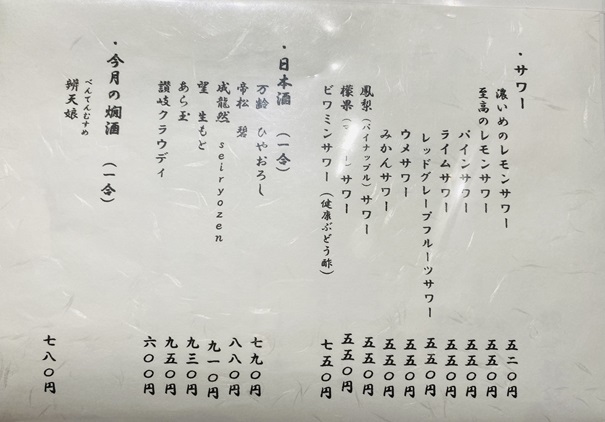 ・サワー
濃いめのレモンサワー 五二〇円
至高のレモンサワー 五五〇円
パインサワー 五五〇円
ライムサワー 五五〇円
レッドグレープフルーツサワー 五五〇円
ウメサワー 五五〇円
みかんサワー 五五〇円
鳳梨(パイナップル)サワー 五五〇円
檬果 サワー 五五〇円
ビワミンサワー(健康ぶどう酢) 七五〇円
・日本酒 (一合)
万齢 ひやおろし 七九〇円
帝松 碧 八八〇円
成龍然 seiryozen 九一〇円
望 生もと 九三〇円
あら玉 九五〇円
讃岐クラウディ 六〇〇円
・今月の燗酒 (一合)
べんてんむすめ
辨天娘 七八〇円